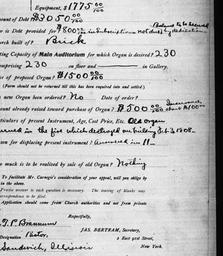 Equipment, $1775 00/100
ount of Debt $3050 00/100
(Balance to be secured
e is Debt provided for $800 00/100 in Subscriptions not due) by dedication
rch built of? Brick
ting Capacity of Main Auditorium for which Organ is desired? 230
mprising 230 on floor and in Gallery.
t of proposed Organ? $1500 00/100
(Form should not be returned till this has been inquired into and stated.)
a new Organ been ordered? No Date of order?
ount already raised toward purchase of Organ? $500 00/100 Insurance
ticulars of present Instrument, Age, Cost Price, Etc. Old organ
urned in the fire which destroyed our building Feb. 2" 1908.
on for displacing present instrument?
w much is to be realized by sale of old Organ? Nothing
To facilitate Mr. Carnegie's consideration of your appeal, will you oblige by
in the above.
Precise answer to each question is necessary. The leaving of blanks may
orrespondence to fail.
Application should come from Church authorities and not from private
Respectfully,
JAS. BERTRAM, Secretary,
Designation Pastor, 2 East 91st Street,
Sandwich, Illinois New York.